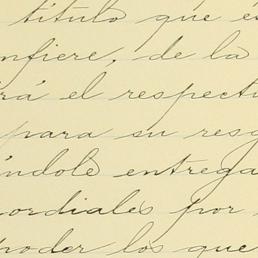 título que és
nfiere, de la
rá el respecti
para su resg
índole entrega
cordiales por
poder los que